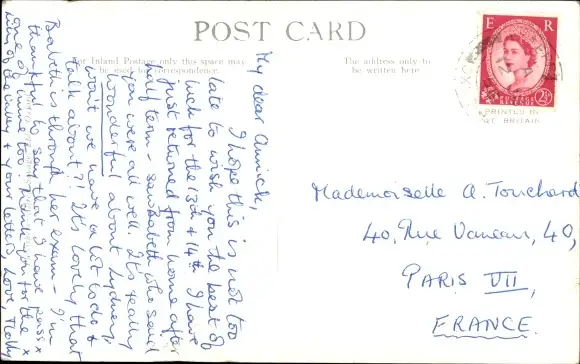 POST CARD
For Inland Postage only this space may
be used for correspondence.
The address only to
be written here
E R
POSTAGE
REVENUE
2½D
PRINTED IN
GT. BRITAIN
My dear Annick,
I hope this is not too
late to wish you the best of
luck for the 13th & 14th. I have
just returned from home after
half term - saw Babeth who said
you were all well. It's really
wonderful about Sydney,
won't we have a lot to do &
talk about?! It's lovely that
Babeth is through her exam - I'm
thankful to say that I have passx
one of mine too! Thank you for the x
Lily of the valley & your letters, Love,
Mademoiselle A. Touchard
40, Rue Vaneau, 40,
PARIS VII,
FRANCE.